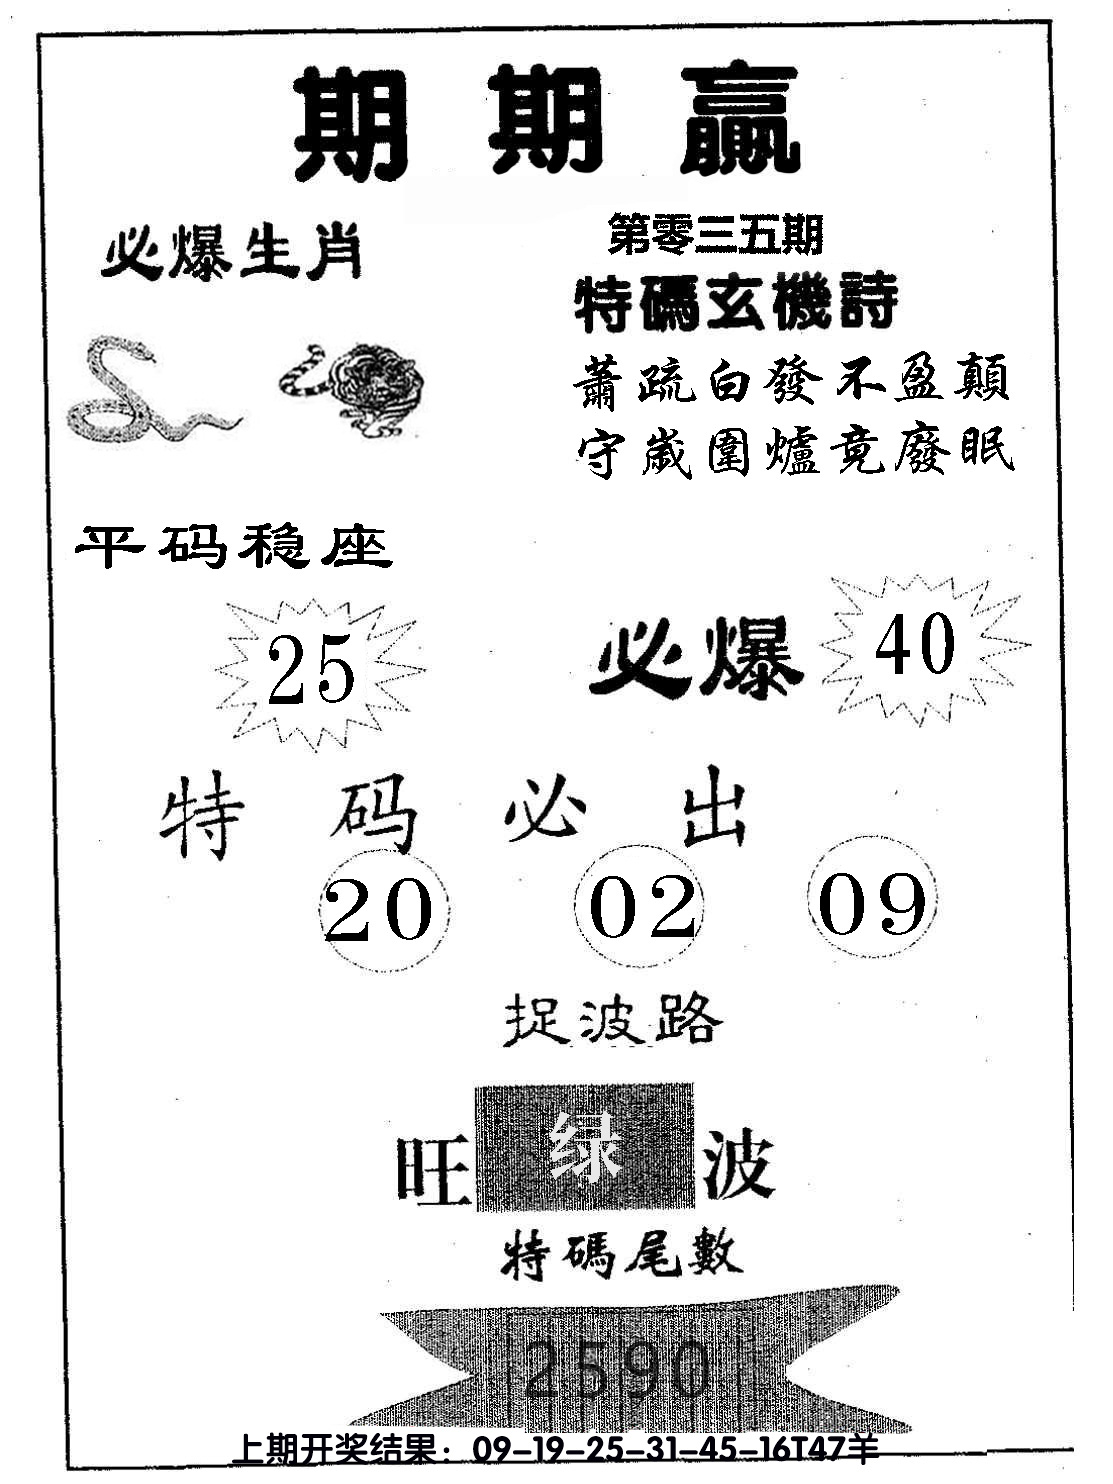 期期赢
必爆生肖
第零三五期
特碼玄機詩
蕭疏白發不盈顛
守歲圍爐竟廢眠
平码稳座
25
必爆
40
特码必出
20 02 09
捉波路
旺绿波
特碼尾數
2590
上期开奖结果：09-19-25-31-45-16T47羊